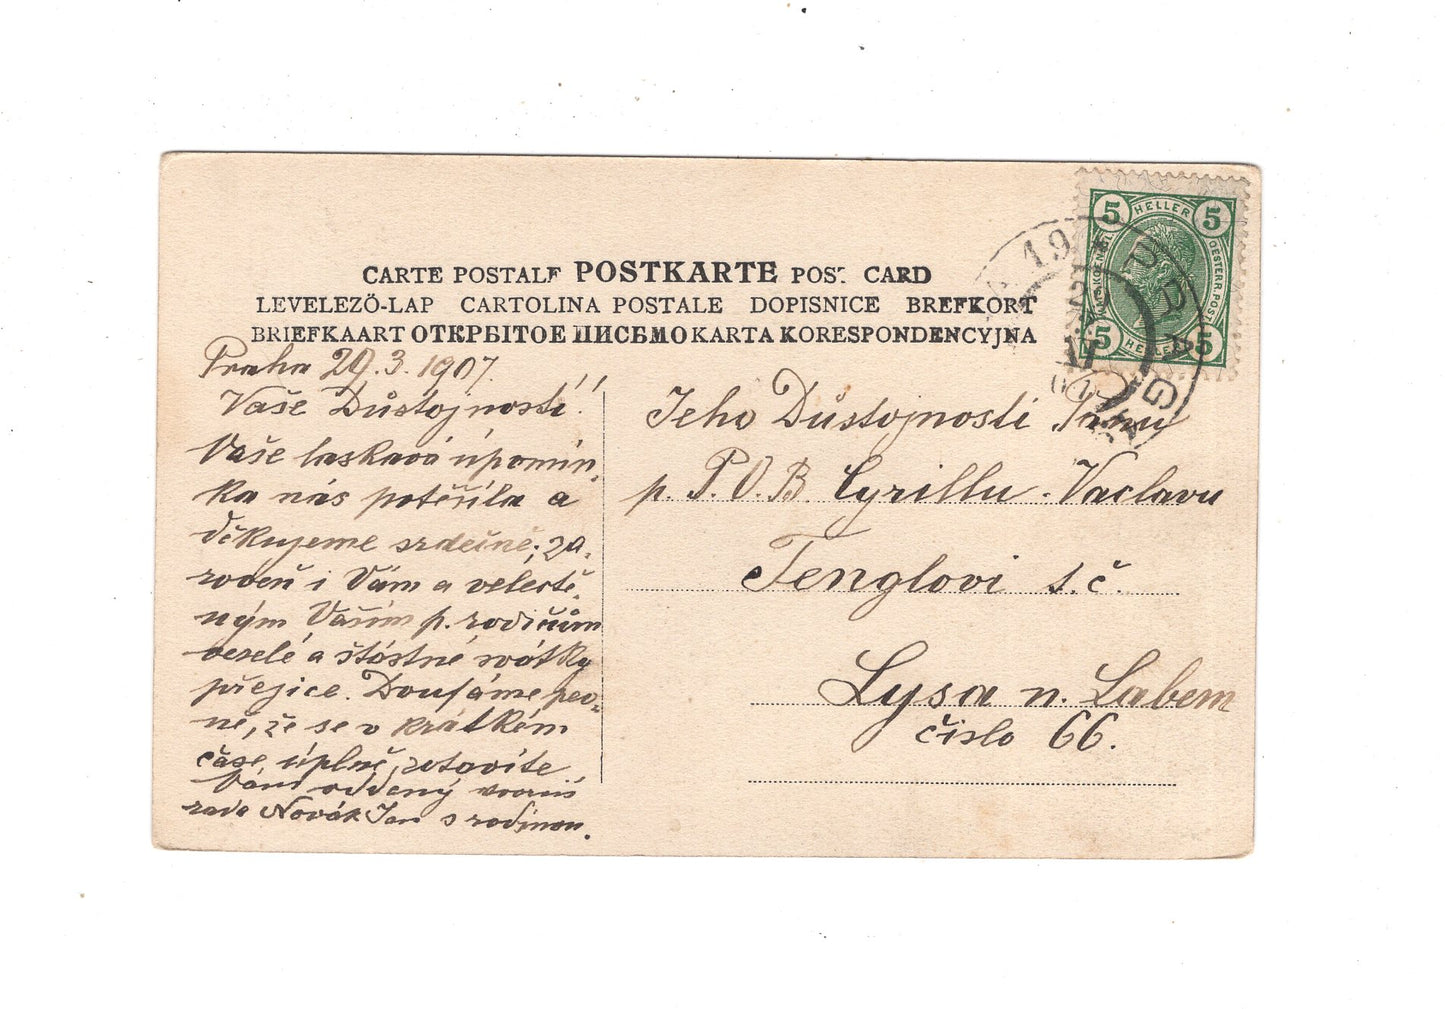 CARTE POSTALE POSTKARTE POST CARD
LEVELEZŐ-LAP CARTOLINA POSTALE DOPISNICE BREFKORT
BRIEFKAART ОТКРЫТОЕ ПИСЬМО KARTA KORESPONDENCYJNA
5 HELLER 5
OESTERR. POST
5 HELLER 5
PRAG
Praha 29.3.1907.
Vaše Důstojnosti!
Vaše laskavá úpomín,
ka nás potěšila a
děkujeme srdečně; za,
roveň i Vám a velectě,
ným Vaším p. rodičům
veselé a štástné svátky
přejice. Doufáme pev,
ně, že se v krátkém
čase úplně zotavíte
Vám oddený
rada Novák Jan s rodinou.
Jeho Důstojnosti Pánu
p. P.O.B. Cyrillu Vaclavu
Fenglovi s.č.
Lysa n. Labem
čislo 66.